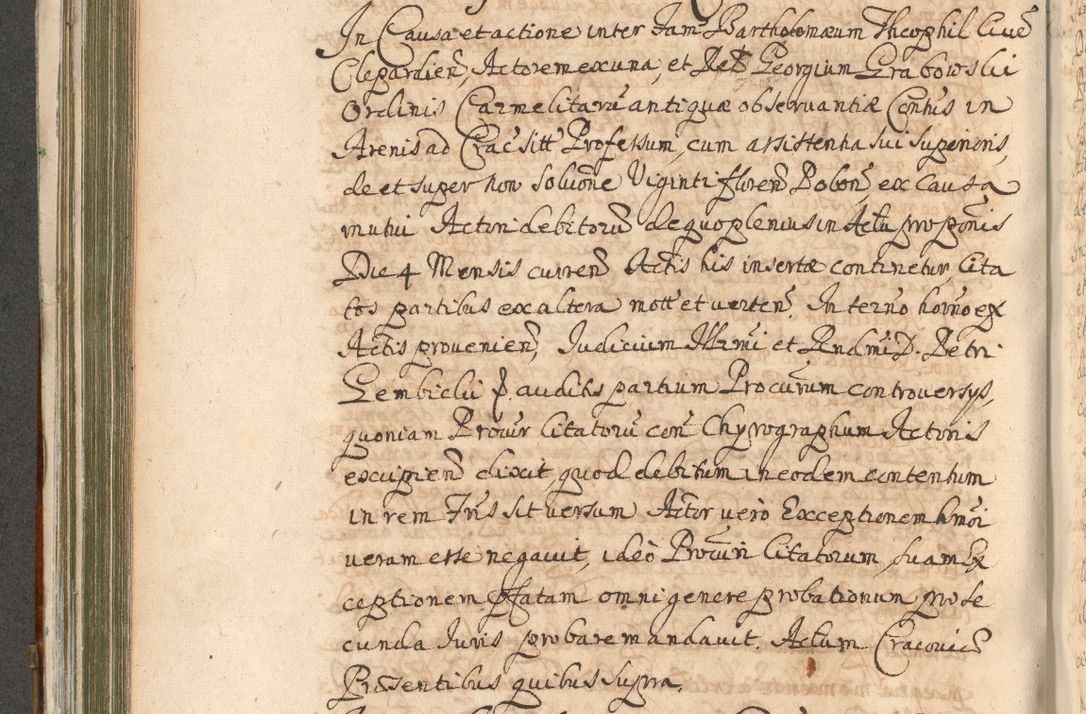 In Causa et actione inter Fam Bartholomæum Theophil Ciue
Clepardien, Actorem ex una, et Rel Georgium Grabowski
Ordinis Carmelitaru antiquæ obseruantiæ Contus in
Arenis ad Crac sitt Professum, cum assistentia sui superioris,
de et super non soluone Viginti floren Polon, ex causa
mutui Actori debitoru de quo plenius in Actu proponis
Die 4 Mensis curren Actis his insertæ continetur, Cita
tos partibus ex altera mott et verten. In terno horno ex
Actis prouenien, Iudicium Illrmi et Rndmi D. Petri
Gembicki p. auditis partium Procurum controuersys,
quoniam Procur Citatoru con Chyrographum Actoris
excipien dixit, quod debitum in eodem contentum
in rem Fris sit versum Actor verò Exceptionem hmoi
veram esse negauit, ideò Procuri Citatorum suam Ex
ceptionem pfatam omni genere probationum prose
cunda Iuris probare mandauit. Actum Cracouiæ
Præsentibus quibus supra.